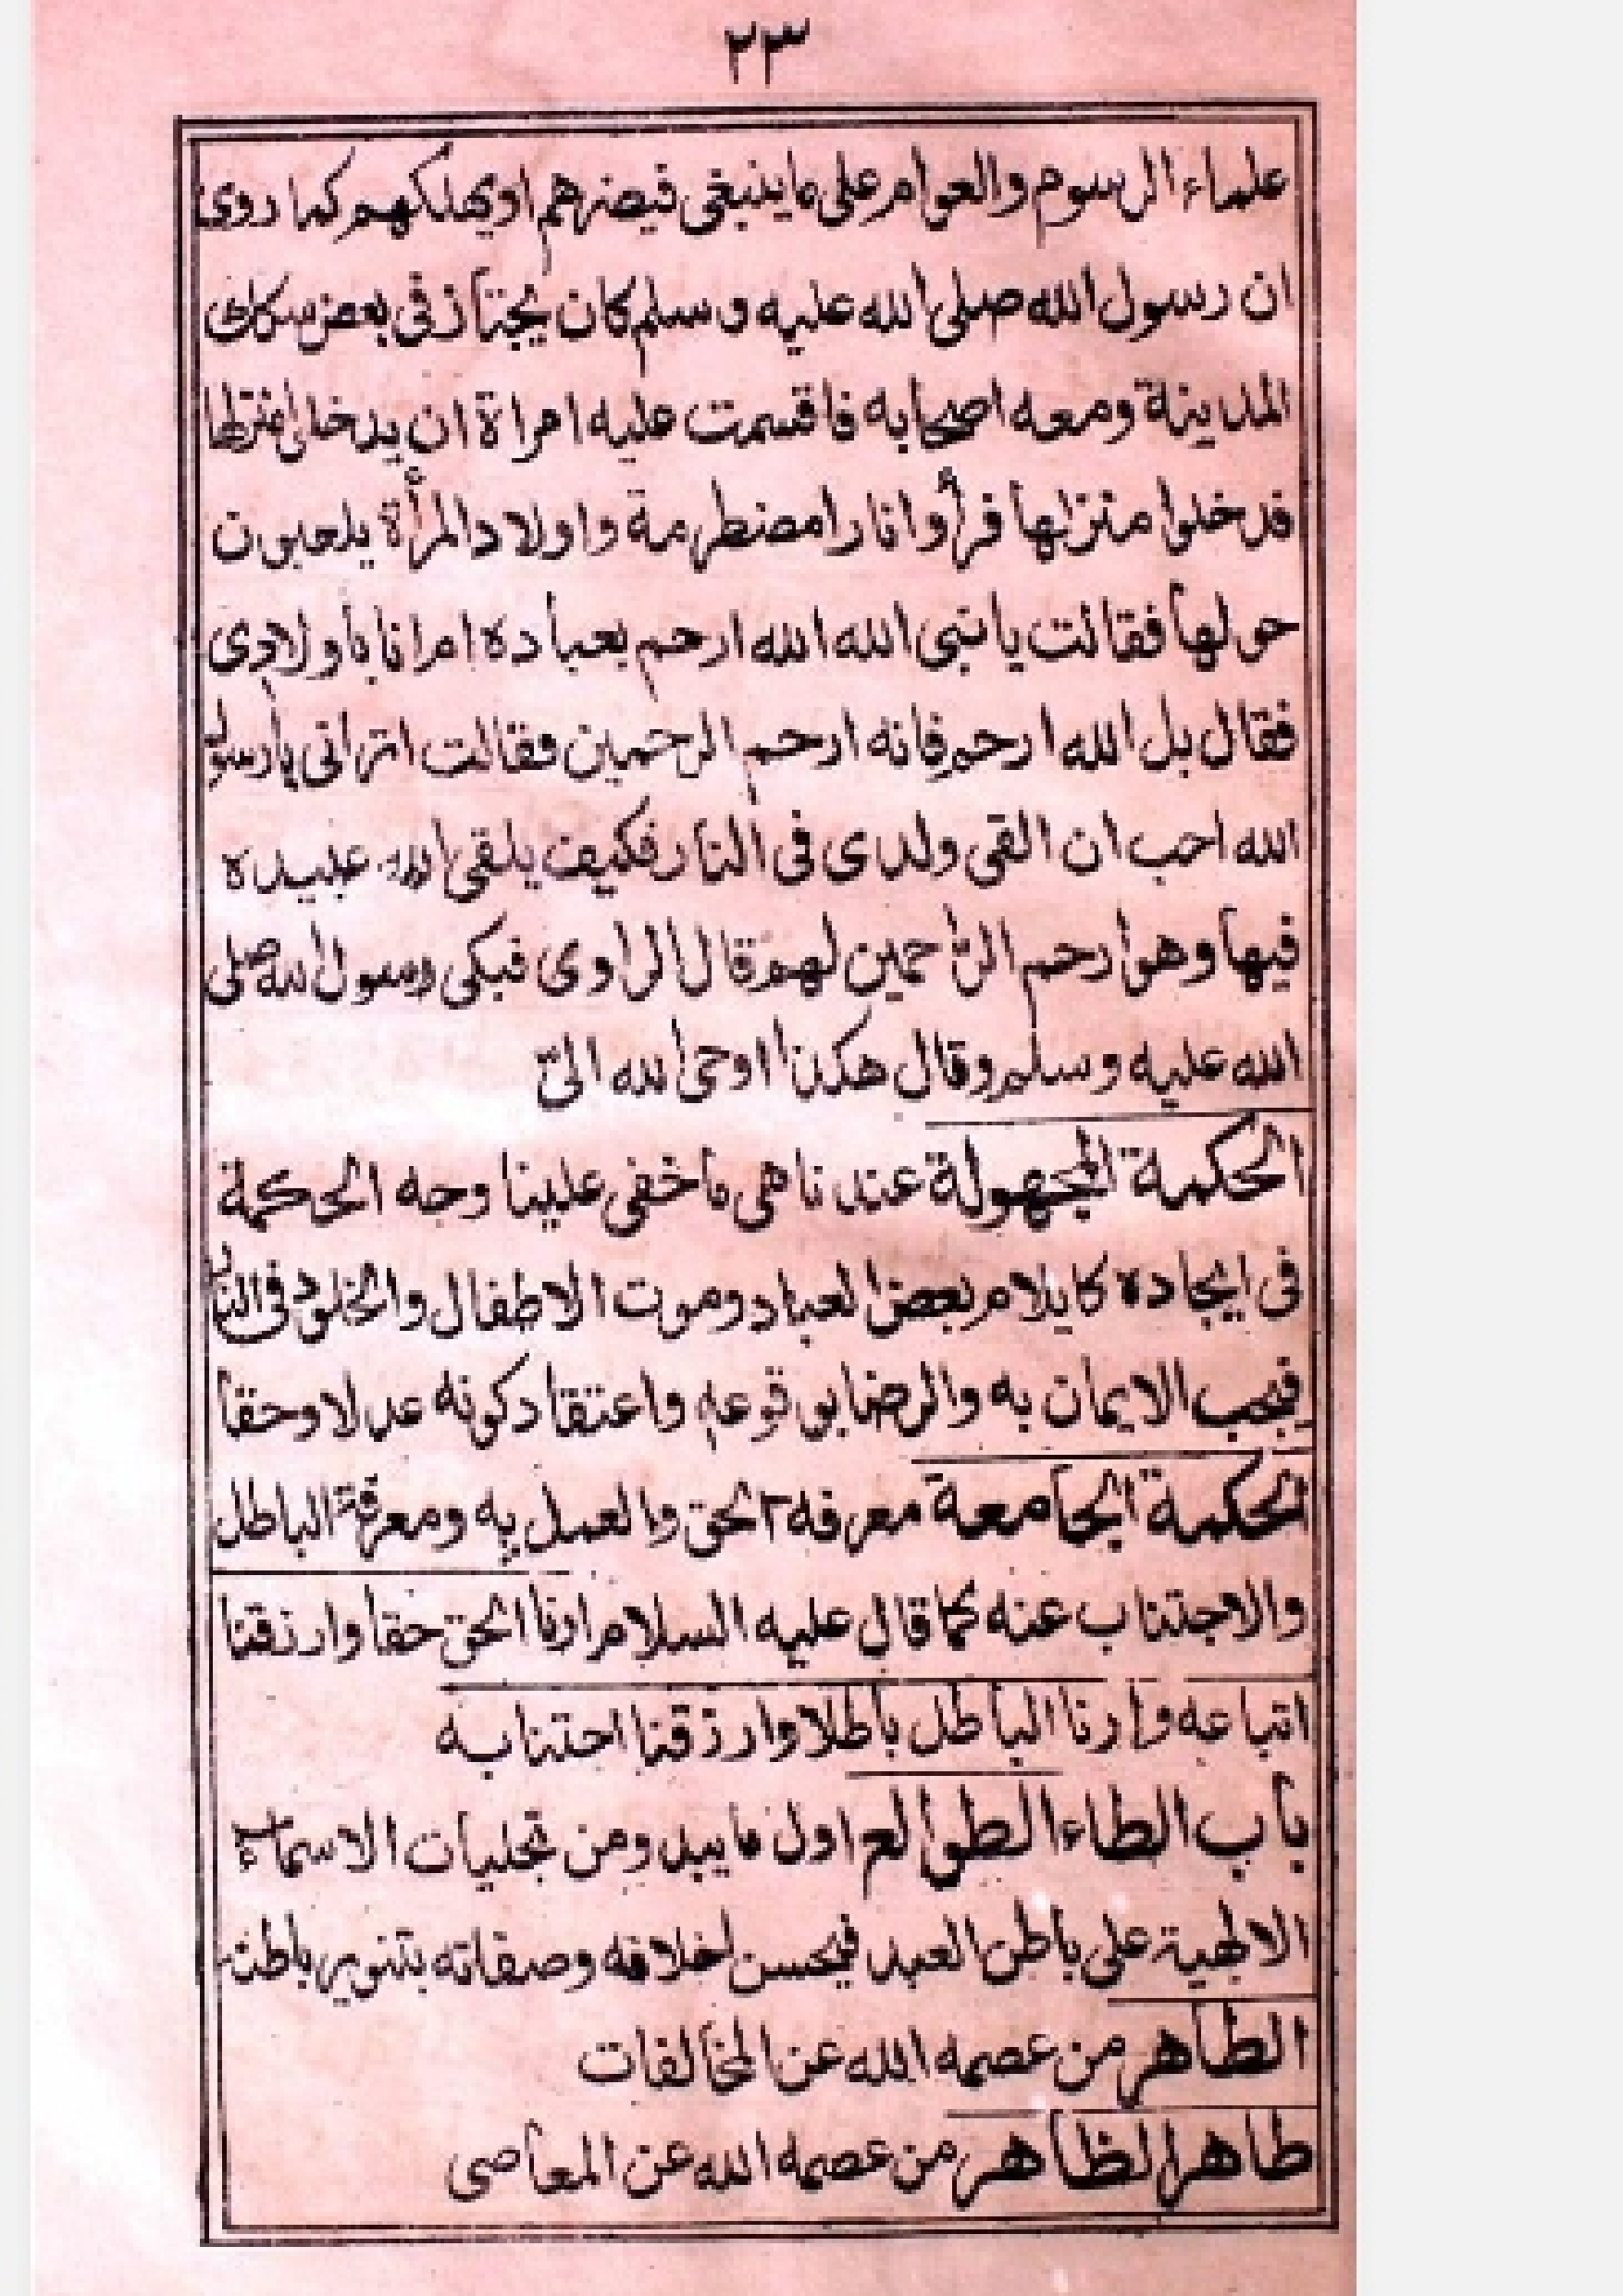 ٢٣
علماء الرسوم والعوام على ما ينبغى فيضرهم او يهلكهم كما روى
ان رسول الله صلى الله عليه وسلم كان يجتاز فى بعض سكك
المدينة ومعه اصحابه فاقسمت عليه امراة ان يدخلوا منزلها
فدخلوا منزلها فرأوا نارا مضطرمة واولاد المرأة يلعبون
حولها فقالت يا نبى الله الله ارحم بعباده ام انا باولادى
فقال بل الله ارحم فانه ارحم الرحمين فقالت اترانى يا رسول
الله احب ان القى ولدى فى النار فكيف يلقى الله عبيده
فيها وهو ارحم الراحمين لهم قال الراوى فبكى رسول الله صلى
الله عليه وسلم وقال هكذا اوحى الله الىّ
الحكمة المجهولة عندنا هى ما خفى علينا وجه الحكمة
فى ايجاده كايلام بعض العباد وموت الاطفال والخلود فى النار
فيجب الايمان به والرضا بوقوعه واعتقاد كونه عدلا وحقا
الحكمة الجامعة معرفة الحق والعمل به ومعرفة الباطل
والاجتناب عنه كما قال عليه السلام ارنا الحق حقا وارزقنا
اتباعه وارنا الباطل باطلا وارزقنا اجتنابه
باب الطاء الطوالع اول ما يبدو من تجليات الاسماء
الالهية على باطن العبد فيحسن اخلاقه وصفاته بتنوير باطنه
الطاهر من عصمه الله عن المخالفات
طاهر الظاهر من عصمه الله عن المعاصى